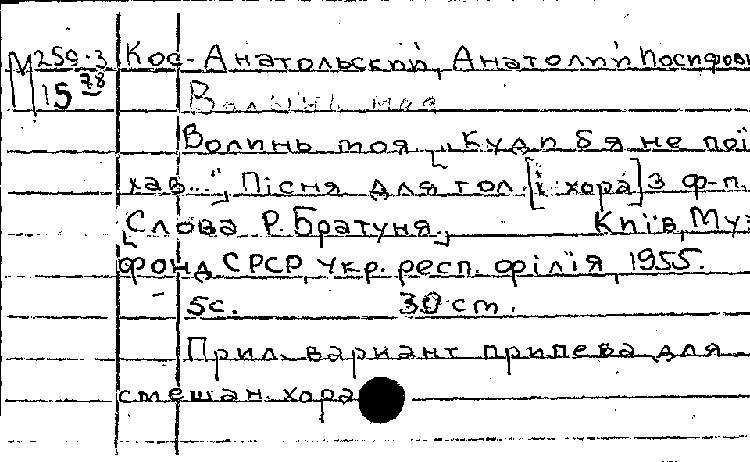 М 25g·3 Кос-Анатольский, Анатолий Иосифови
15 78 Волынь моя
Волинь моя „Куди б я не пої
хав...", Пісня для гол. [і хора] з ф-п.
Слова Р. Братуня. Київ, Му
фонд СРСР, Укр. респ. філ'ія, 1955.
5с. 30 ст.
Прил. вариант припева для
смешан. хора